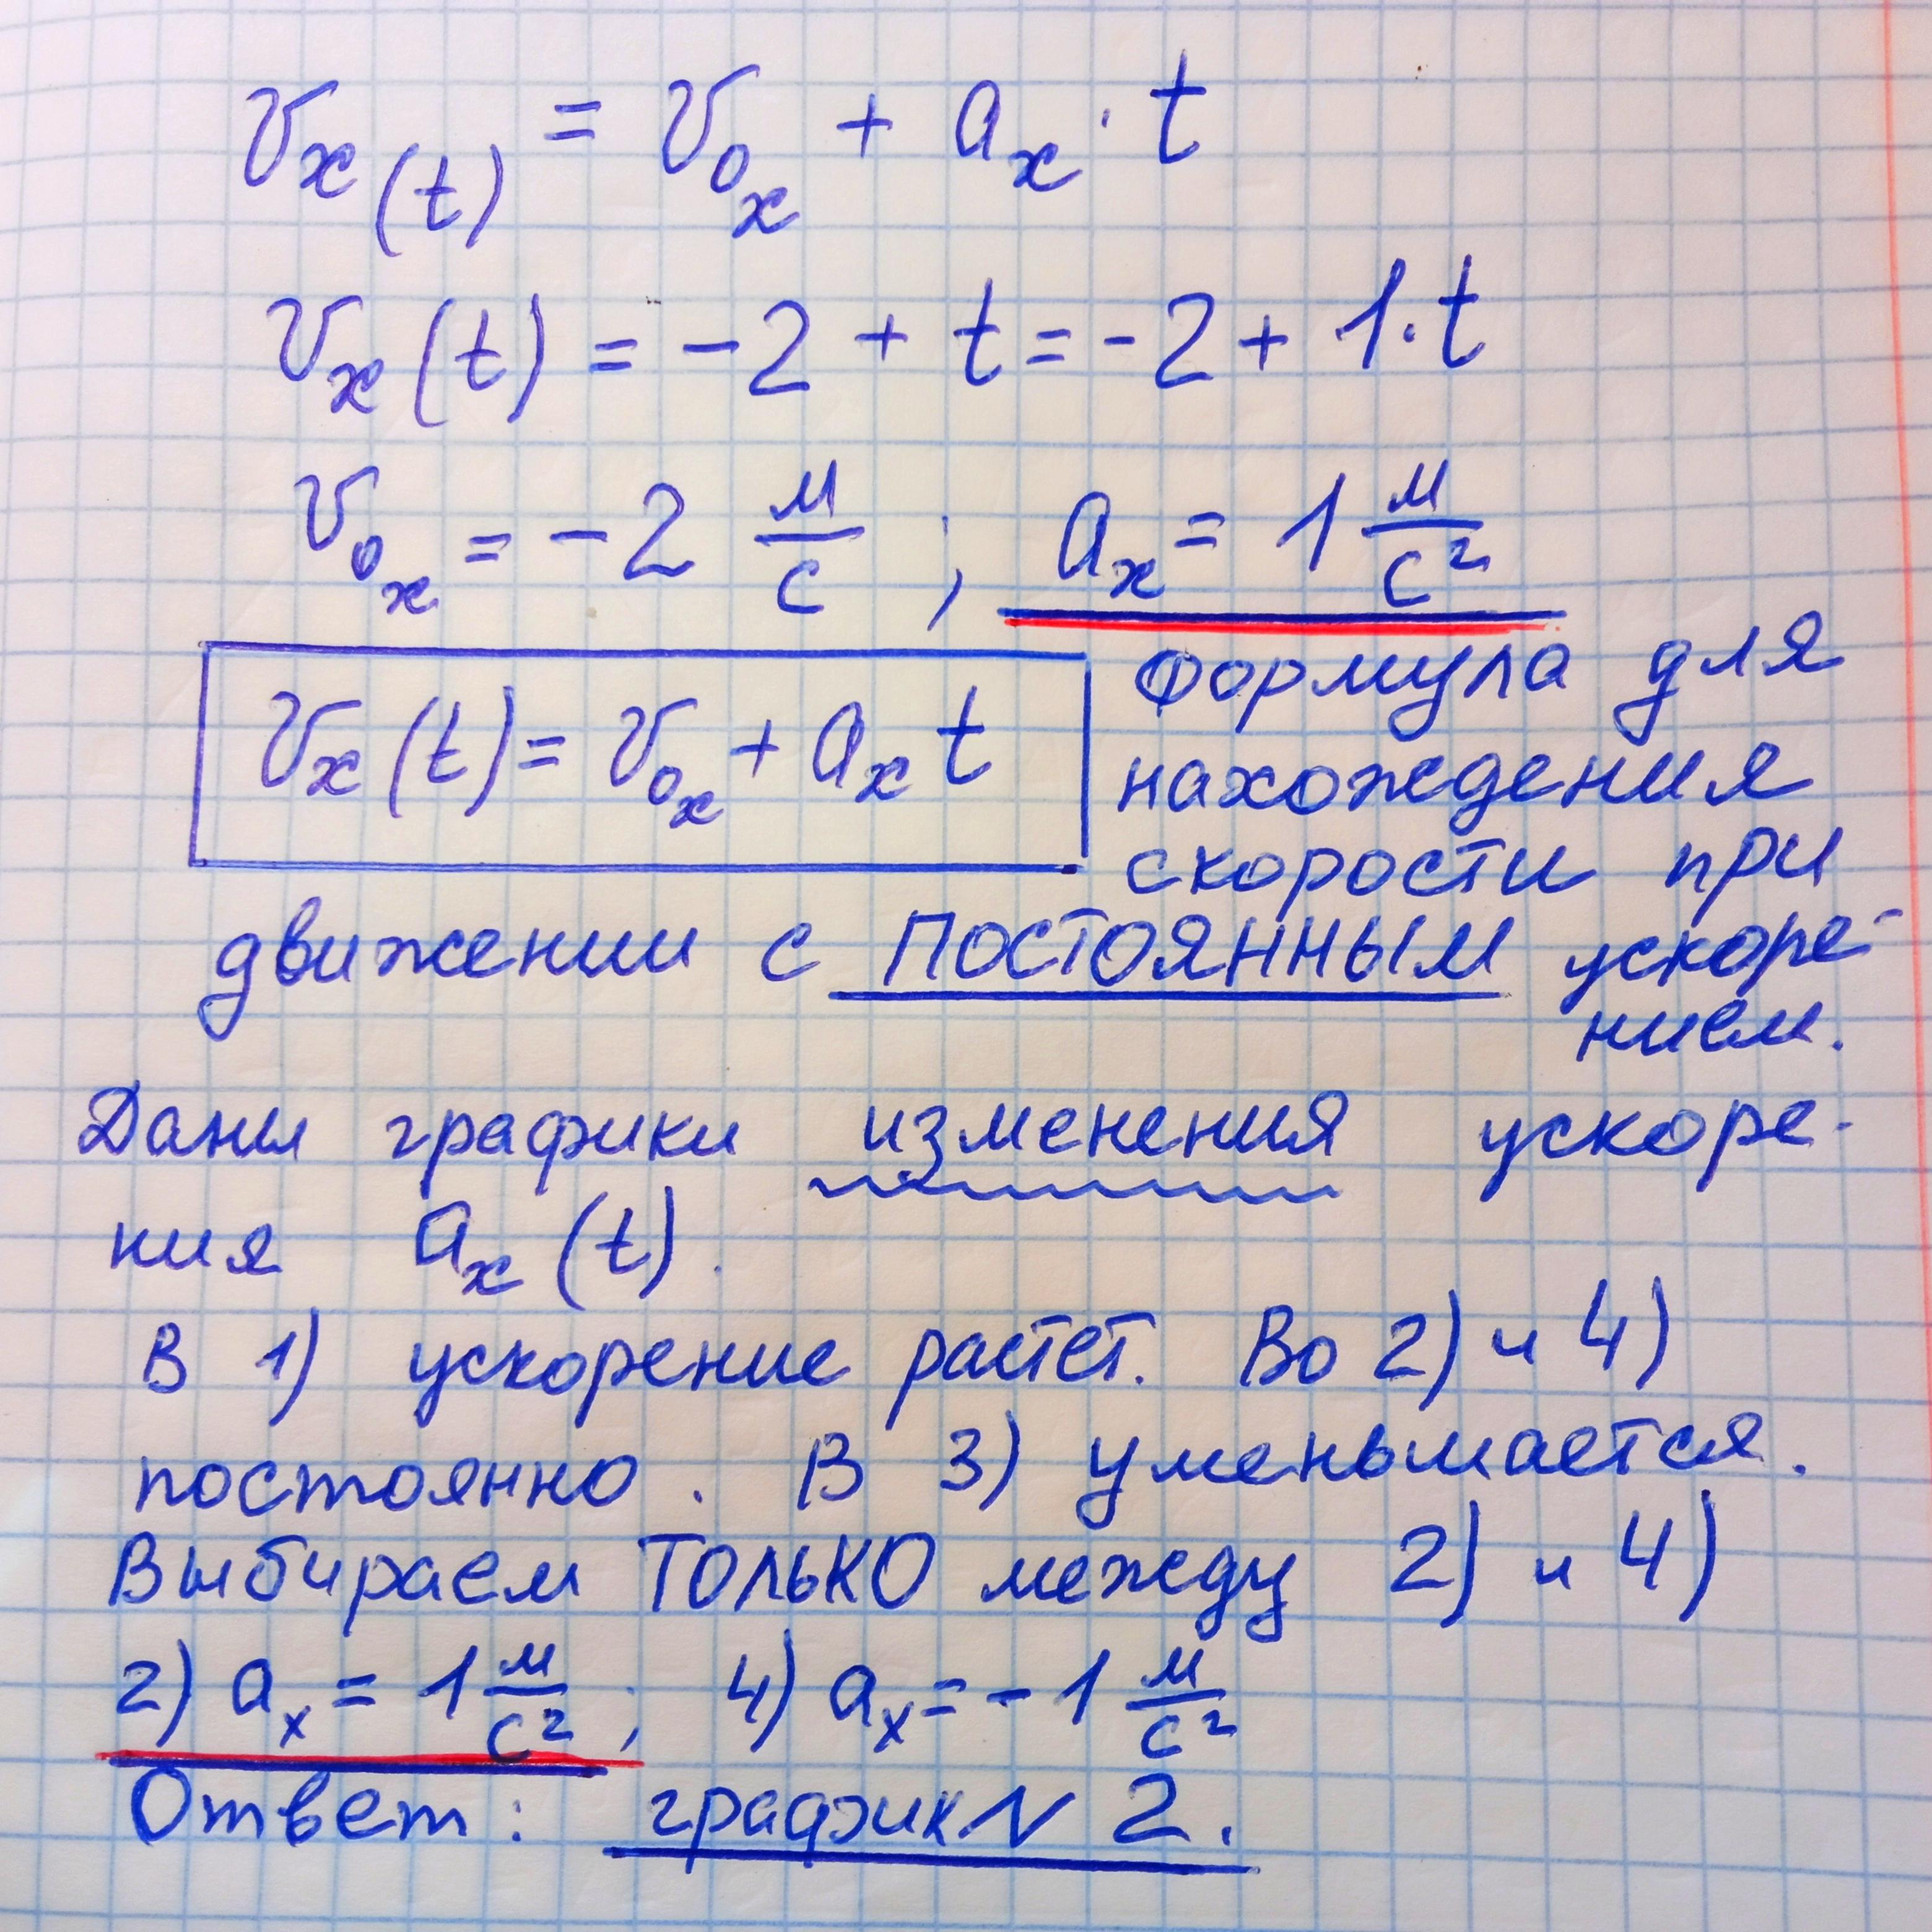 Vx(t) = V0x + ax · t
Vx(t) = -2 + t = -2 + 1·t
V0x = -2 м/с ; ax = 1 м/с²
Vx(t) = V0x + ax t
формула для
нахождения
скорости при
движении с ПОСТОЯННЫМ ускоре-
нием.
Даны графики изменения ускоре-
ния ax(t).
В 1) ускорение растет. Во 2) и 4)
постоянно. В 3) уменьшается.
Выбираем ТОЛЬКО между 2) и 4)
2) ax = 1 м/с² ; 4) ax = -1 м/с²
Ответ: график N 2.